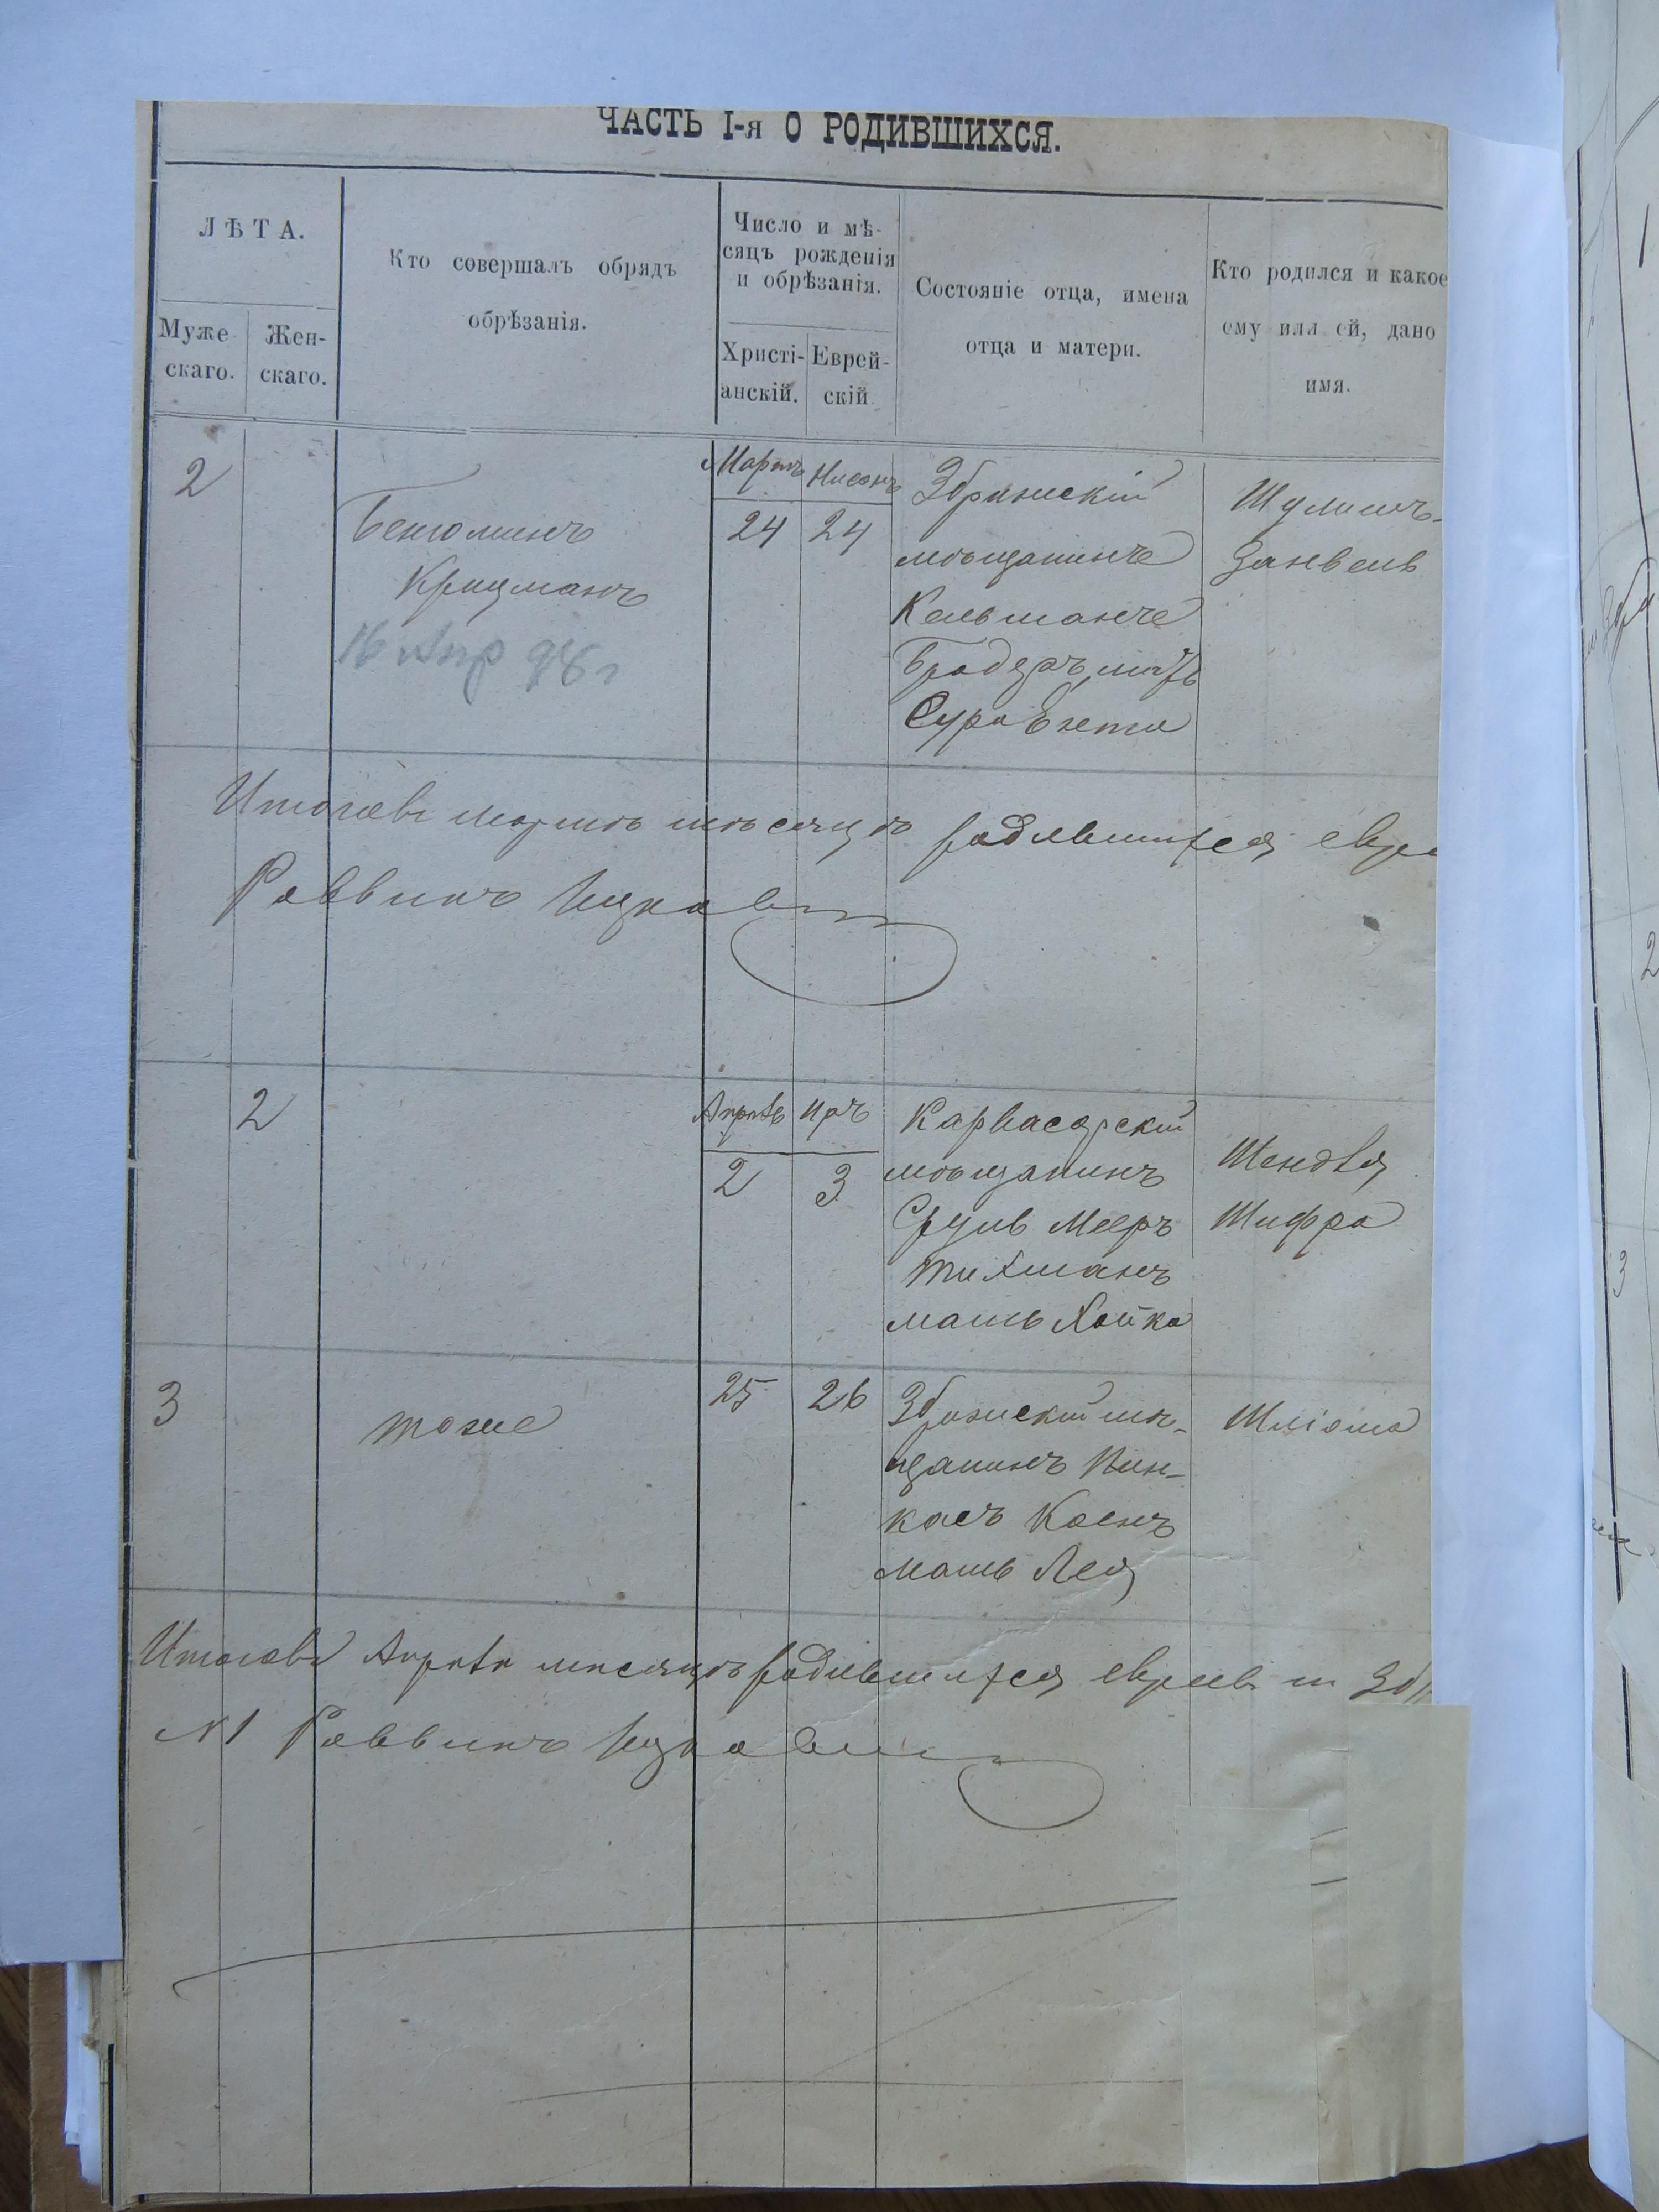 ЧАСТЬ I-я О РОДИВШИХСЯ.
ЛѢТА.
Муже
скаго.
Жен-
скаго.
Кто совершалъ обрядъ
обрѣзанія.
Число и мѣ-
сяцъ рожденія
и обрѣзанія.
Христі-
анскій.
Еврей-
скій
Состояніе отца, имена
отца и матери.
Кто родился и какое
ему или ей, дано
имя.
2
Беніоминъ
Крицманъ
16 Апр
Мартъ
24
Нисонъ
24
Збрижскій
мѣщанинъ
Кельманъ
Бродеръ, мать
Сура
Шулимъ-
Занвель
Итого въ мартѣ мѣсяцѣ родившихся евре
Раввинъ
2
Апрѣль
2
Иръ
3
Карвасарскій
мѣщанинъ
Сруль Мееръ
мать Хайка
Шендля
Шифра
3
тоже
25
26
Збрижскій мѣ-
щанинъ Пин-
касъ Коенъ
мать Лея
Шліома
Итого въ Апрѣлѣ мѣсяцѣ родившихся евреевъ м Зб
№1 Раввинъ
2
3